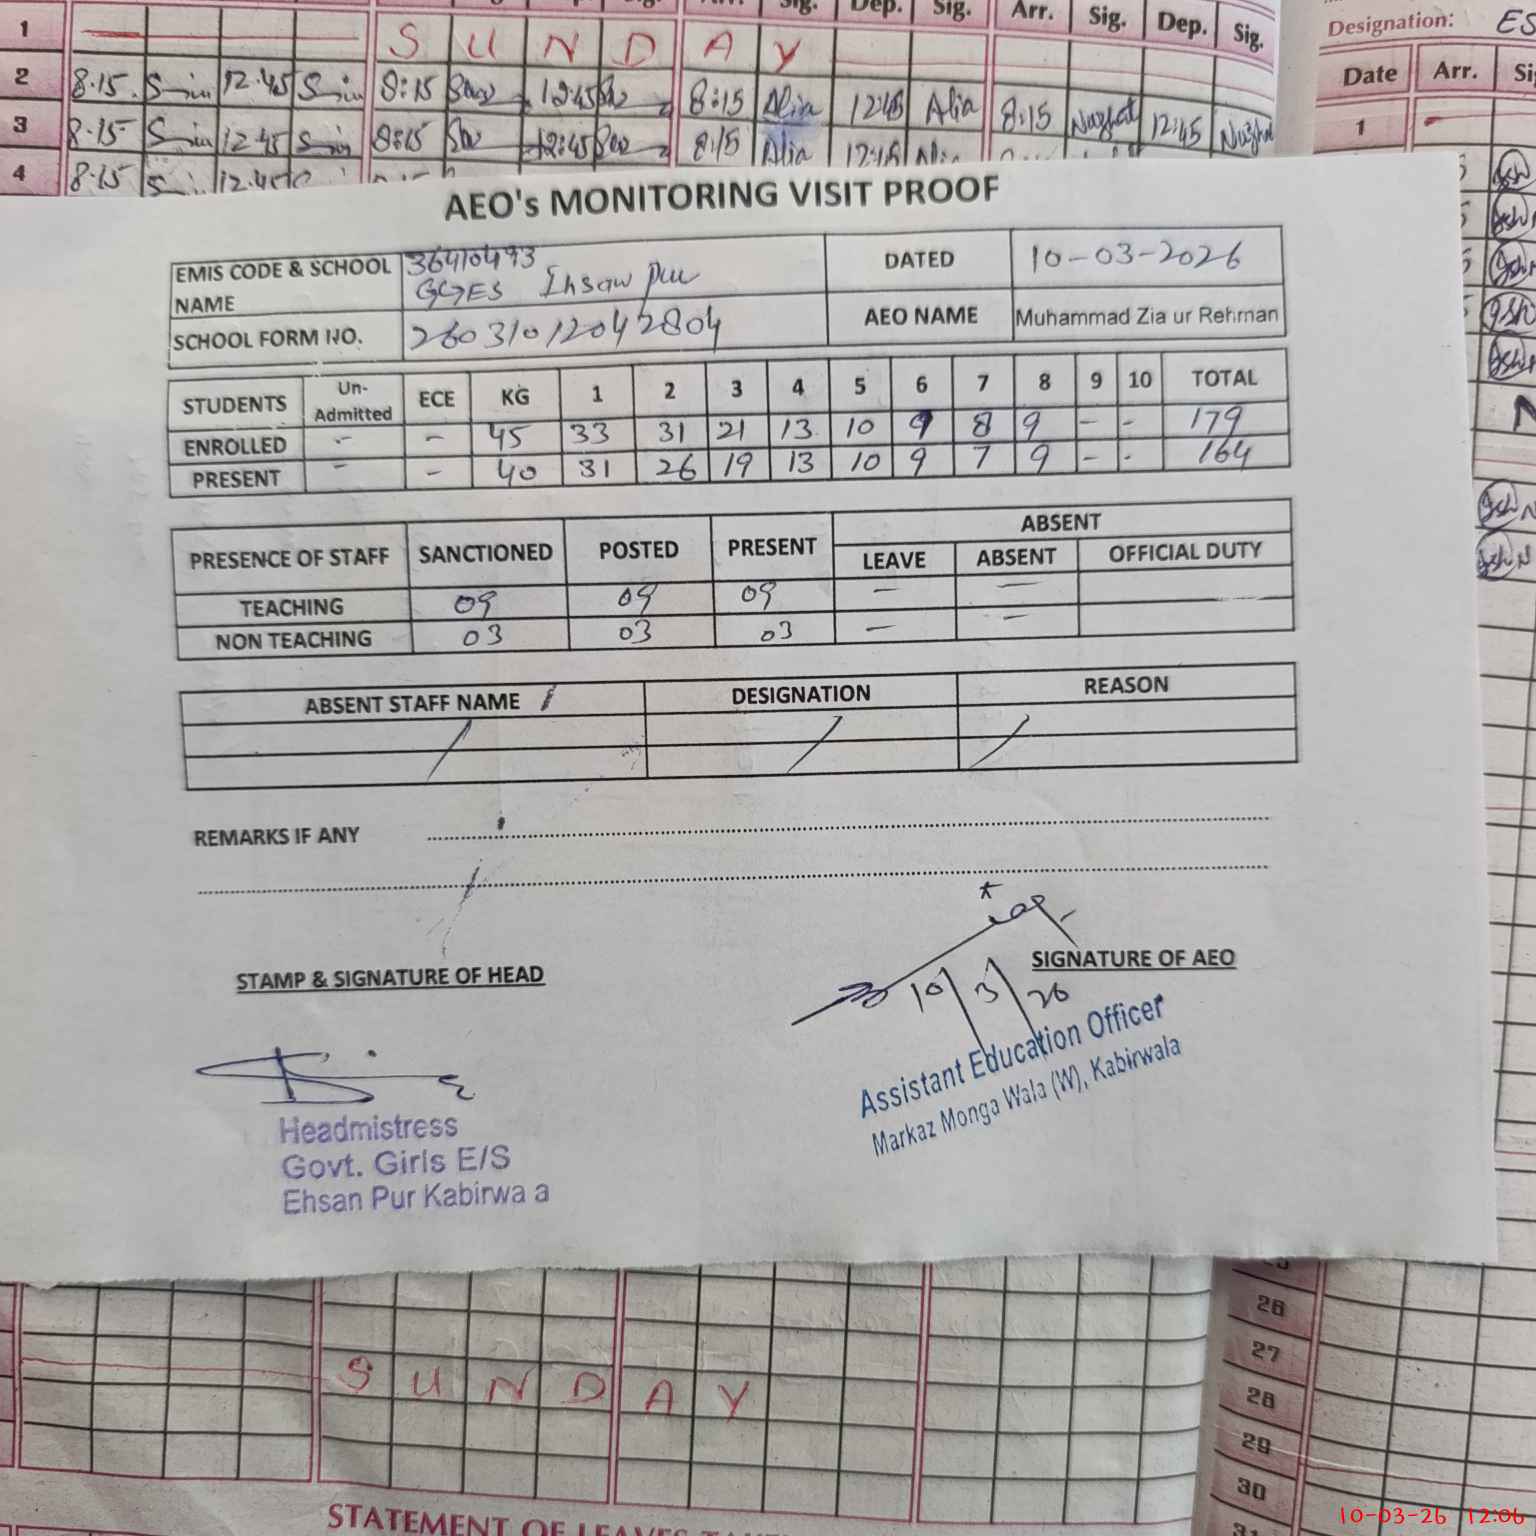 Arr. Sig. Dep. Sig.
Dep. Sig.
1 S U N D A Y
2 8.15. 12.45 8:15 12:45 8:15 Alia 12:45 Alia 8:15 Nuzhat 12:45
3 8.15 12.45 8:15 12:45 8:15 Alia 12:45
4 8.15 12.45
Designation: ES
Date Arr.
1
AEO's MONITORING VISIT PROOF
EMIS CODE & SCHOOL NAME 36410493 GGES Ihsan Pur DATED 10-03-2026
SCHOOL FORM NO. 26031012042804 AEO NAME Muhammad Zia ur Rehman
STUDENTS Un-Admitted ECE KG 1 2 3 4 5 6 7 8 9 10 TOTAL
ENROLLED - - 45 33 31 21 13 10 9 8 9 - - 179
PRESENT - - 40 31 26 19 13 10 9 7 9 - - 164
PRESENCE OF STAFF SANCTIONED POSTED PRESENT ABSENT
LEAVE ABSENT OFFICIAL DUTY
TEACHING 09 09 09 - -
NON TEACHING 03 03 03 - -
ABSENT STAFF NAME DESIGNATION REASON
REMARKS IF ANY
STAMP & SIGNATURE OF HEAD
SIGNATURE OF AEO
10/3/26
Assistant Education Officer
Markaz Monga Wala (W), Kabirwala
Headmistress
Govt. Girls E/S
Ehsan Pur Kabirwa a
S U N D A Y
26
27
28
29
30
31
STATEMENT OF LEAVES
10-03-26 12:06